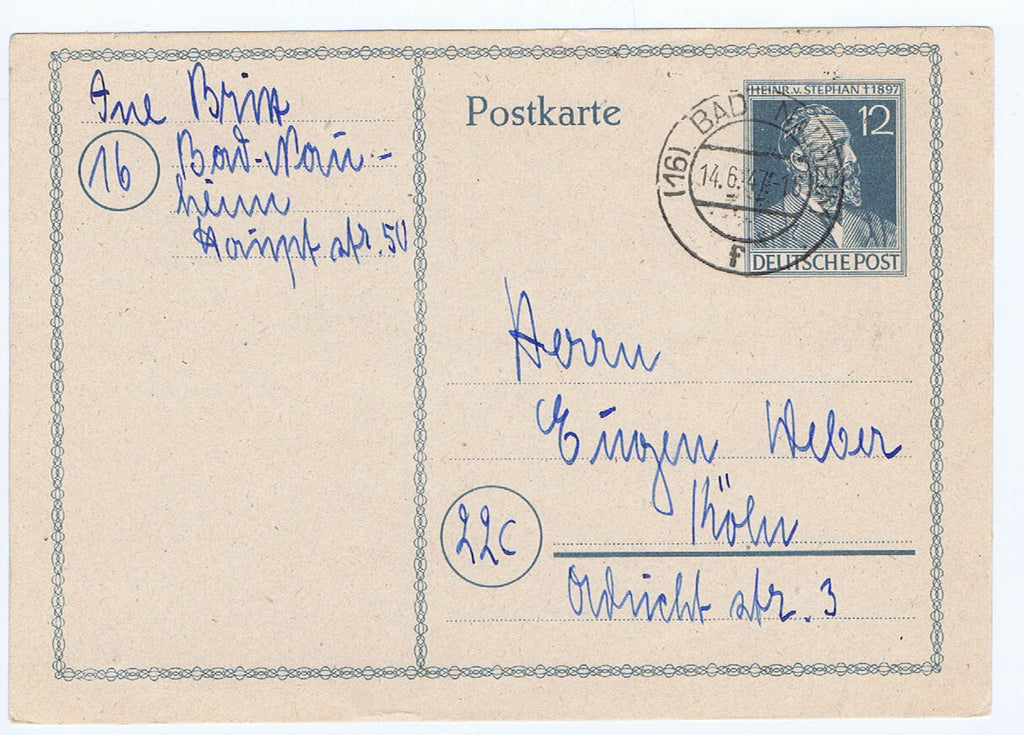 Brix
16
Bad-Nau-
heim
Haupt str. 50
Postkarte
HEINR. v. STEPHAN † 1897
12
DEUTSCHE POST
(16) BAD NAUHEIM
14.6.47.-18
f
Herrn
Eugen Weber
Köln
22c
str. 3